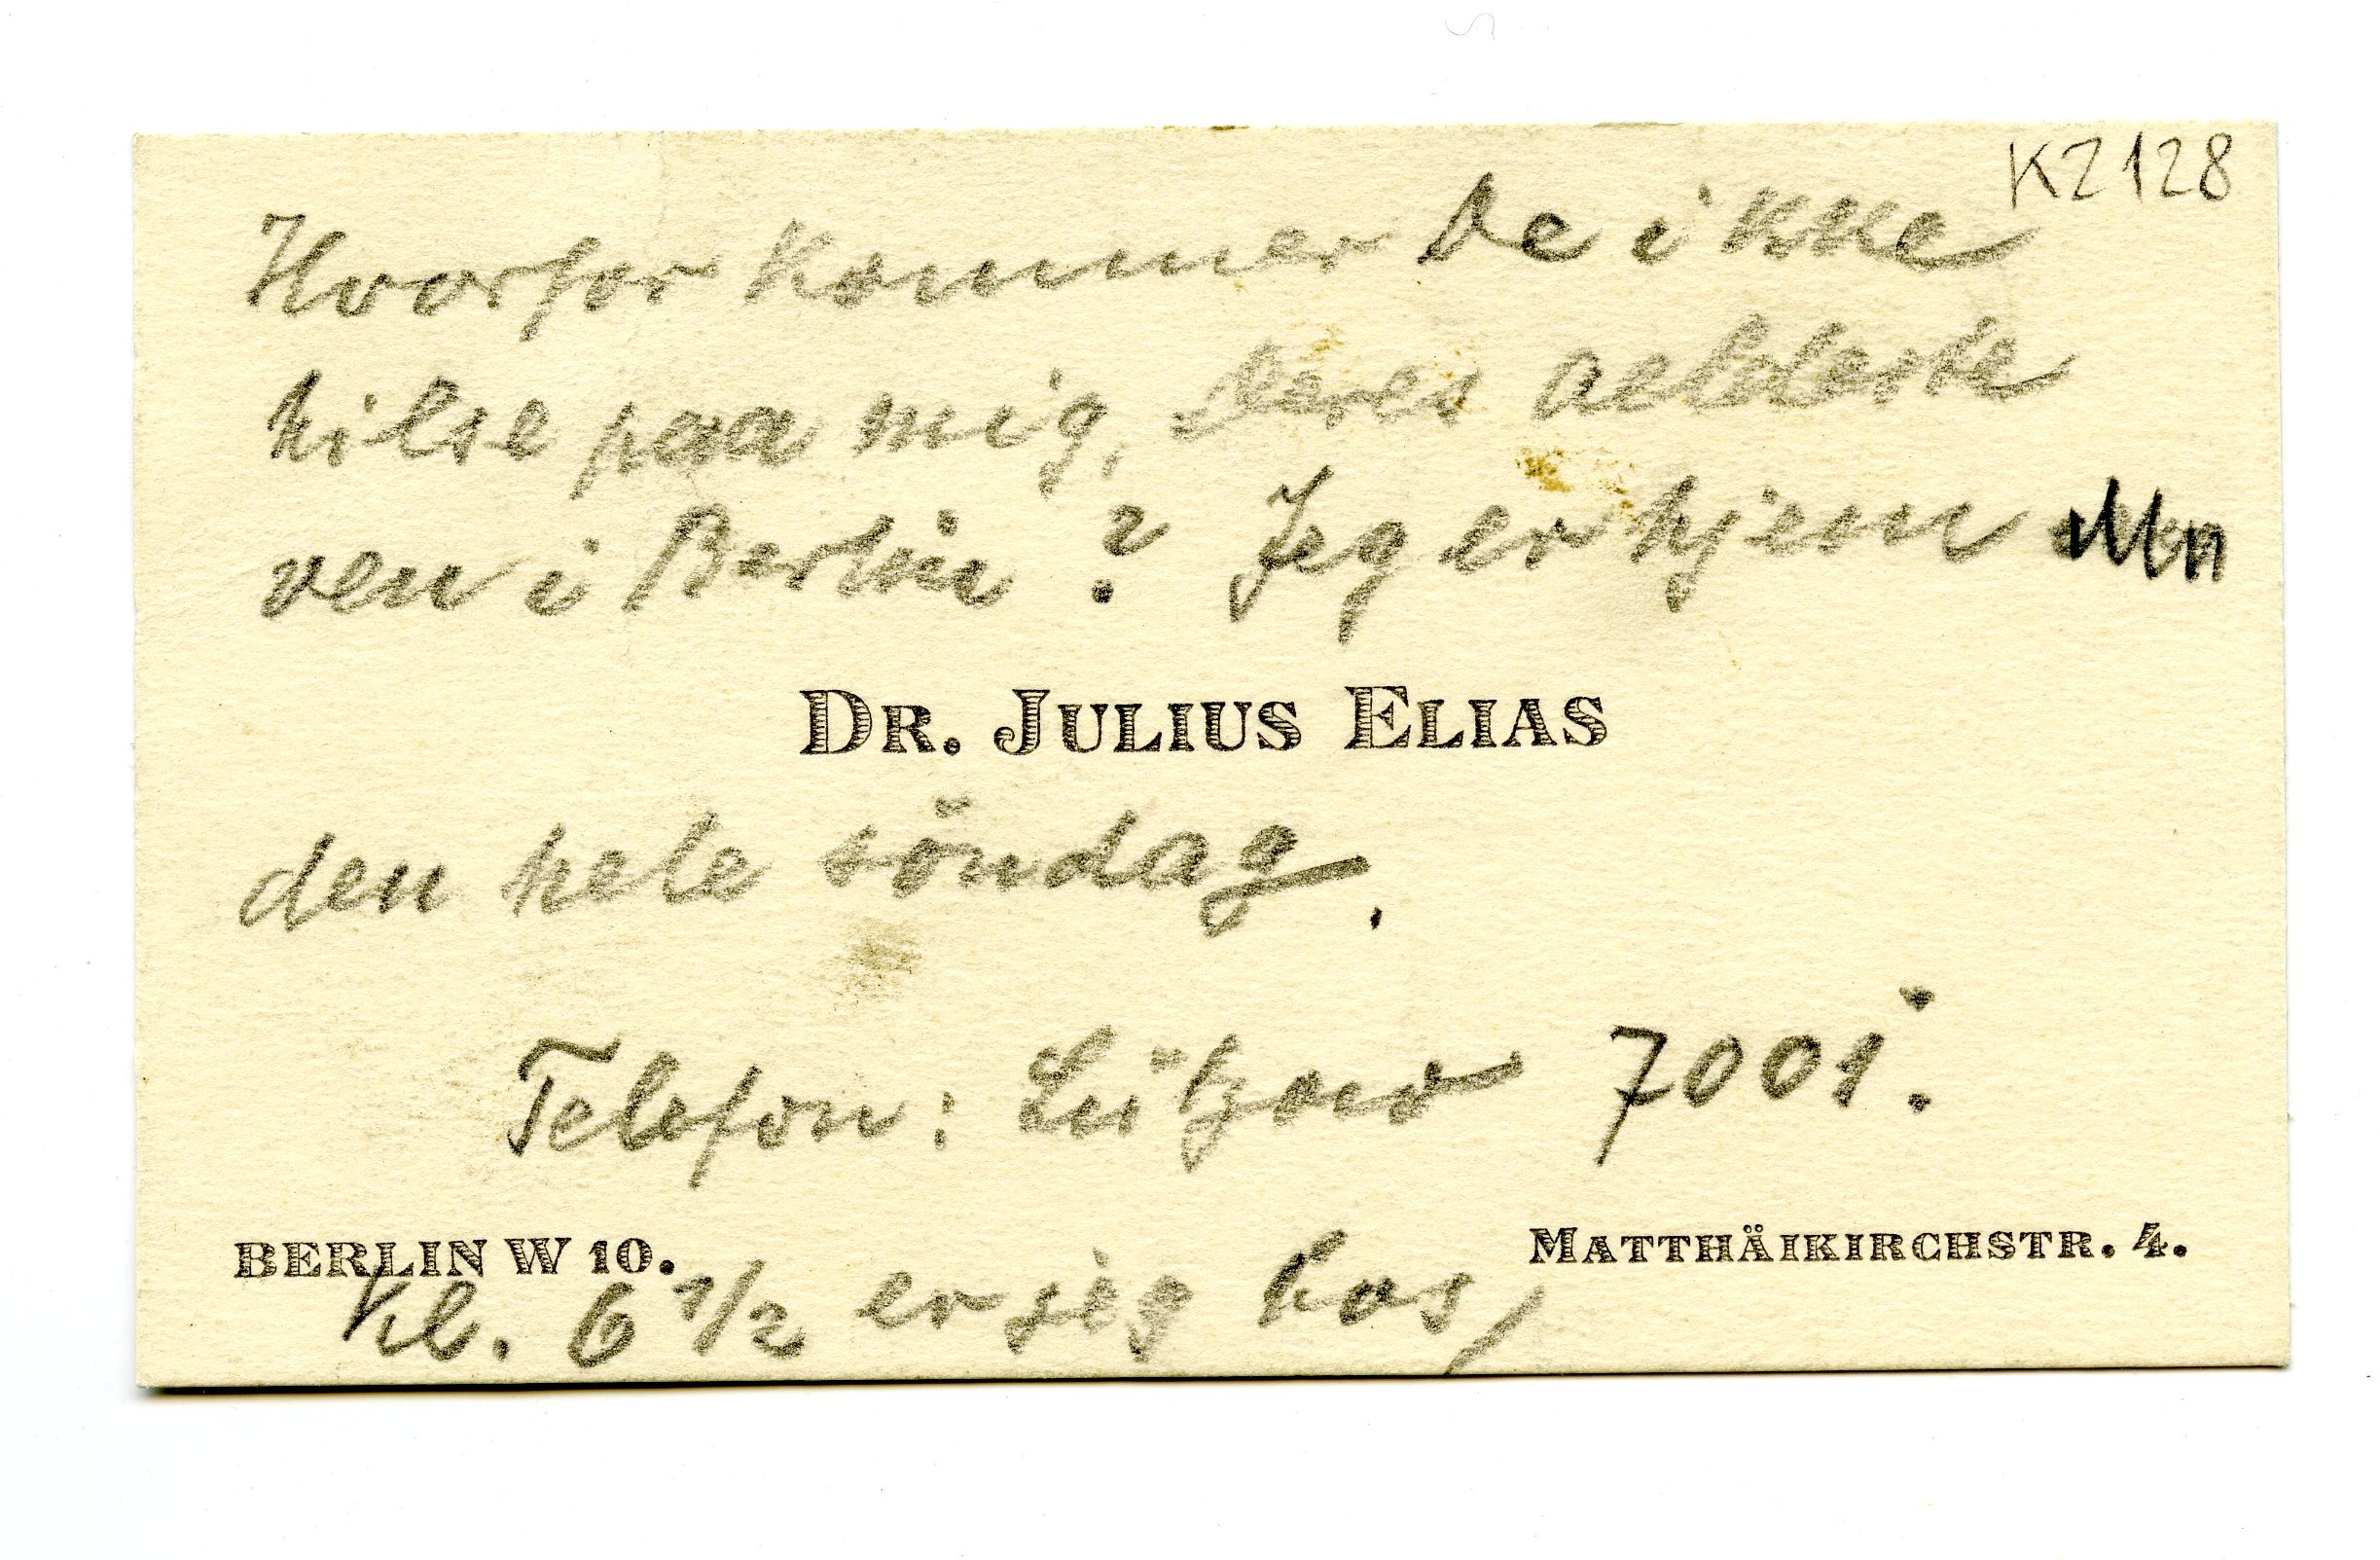 K2128
Hvorfor kommer De ikke
hilse paa mig, Deres aeldeste
ven i Berlin? Jeg er hjem
DR. JULIUS ELIAS
den hele söndag.
Telefon: Lützow 7001.
BERLIN W 10. MATTHÄIKIRCHSTR. 4.
Kl. 6 1/2 er jeg hos,